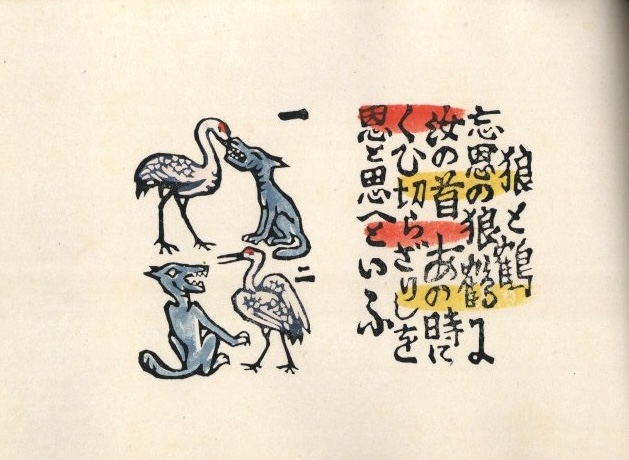 狼と鶴
忘恩の狼鶴に
汝の首あの時に
くひ切らざりしを
恩と思へといふ
一
二